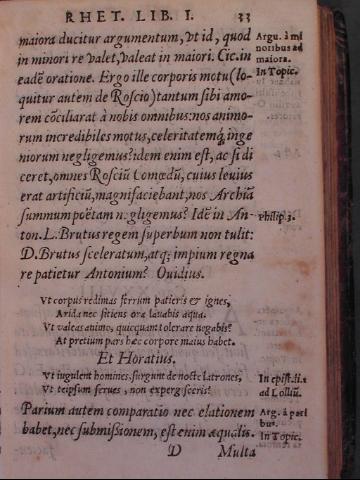 RHET. LIB. I. 33
maiora ducitur argumentum, vt id, quod
Argu. à mi
in minori re valet, valeat in maiori. Cic. in
noribus ad
maiora.
eadē oratione. Ergo ille corporis motu (lo-
In Topic.
quitur autem de Roscio) tantum sibi amo-
rem cōciliarat à nobis omnibus: nos animo-
rum incredibiles motus, celeritatemq́; inge
niorum negligemus? idem enim est, ac si di
ceret, omnes Rosciū Comœdū, cuius leuius
erat artificiū, magnifaciebant; nos Archiā
summum poëtam negligemus? Idē in An-
Philip. 3.
ton. L. Brutus regem superbum non tulit:
D. Brutus sceleratum, atq; impium regna
re patietur Antonium? Ouidius.
Vt corpus redimas ferrum patieris & ignes,
Arida nec sitiens ora lauabis aqua.
Vt valeas animo, quicquam tolerare negabis?
At pretium pars hæc corpore maius habet.
Et Horatius.
Vt iugulent homines, surgunt de nocte latrones,
In epist. li. 1
Vt teipsum serues, non expergisceris?
ad Lolliū.
Parium autem comparatio nec elationem
Arg. à pari
bus.
habet, nec submissionem, est enim æqualis.
In Topic.
D Multa